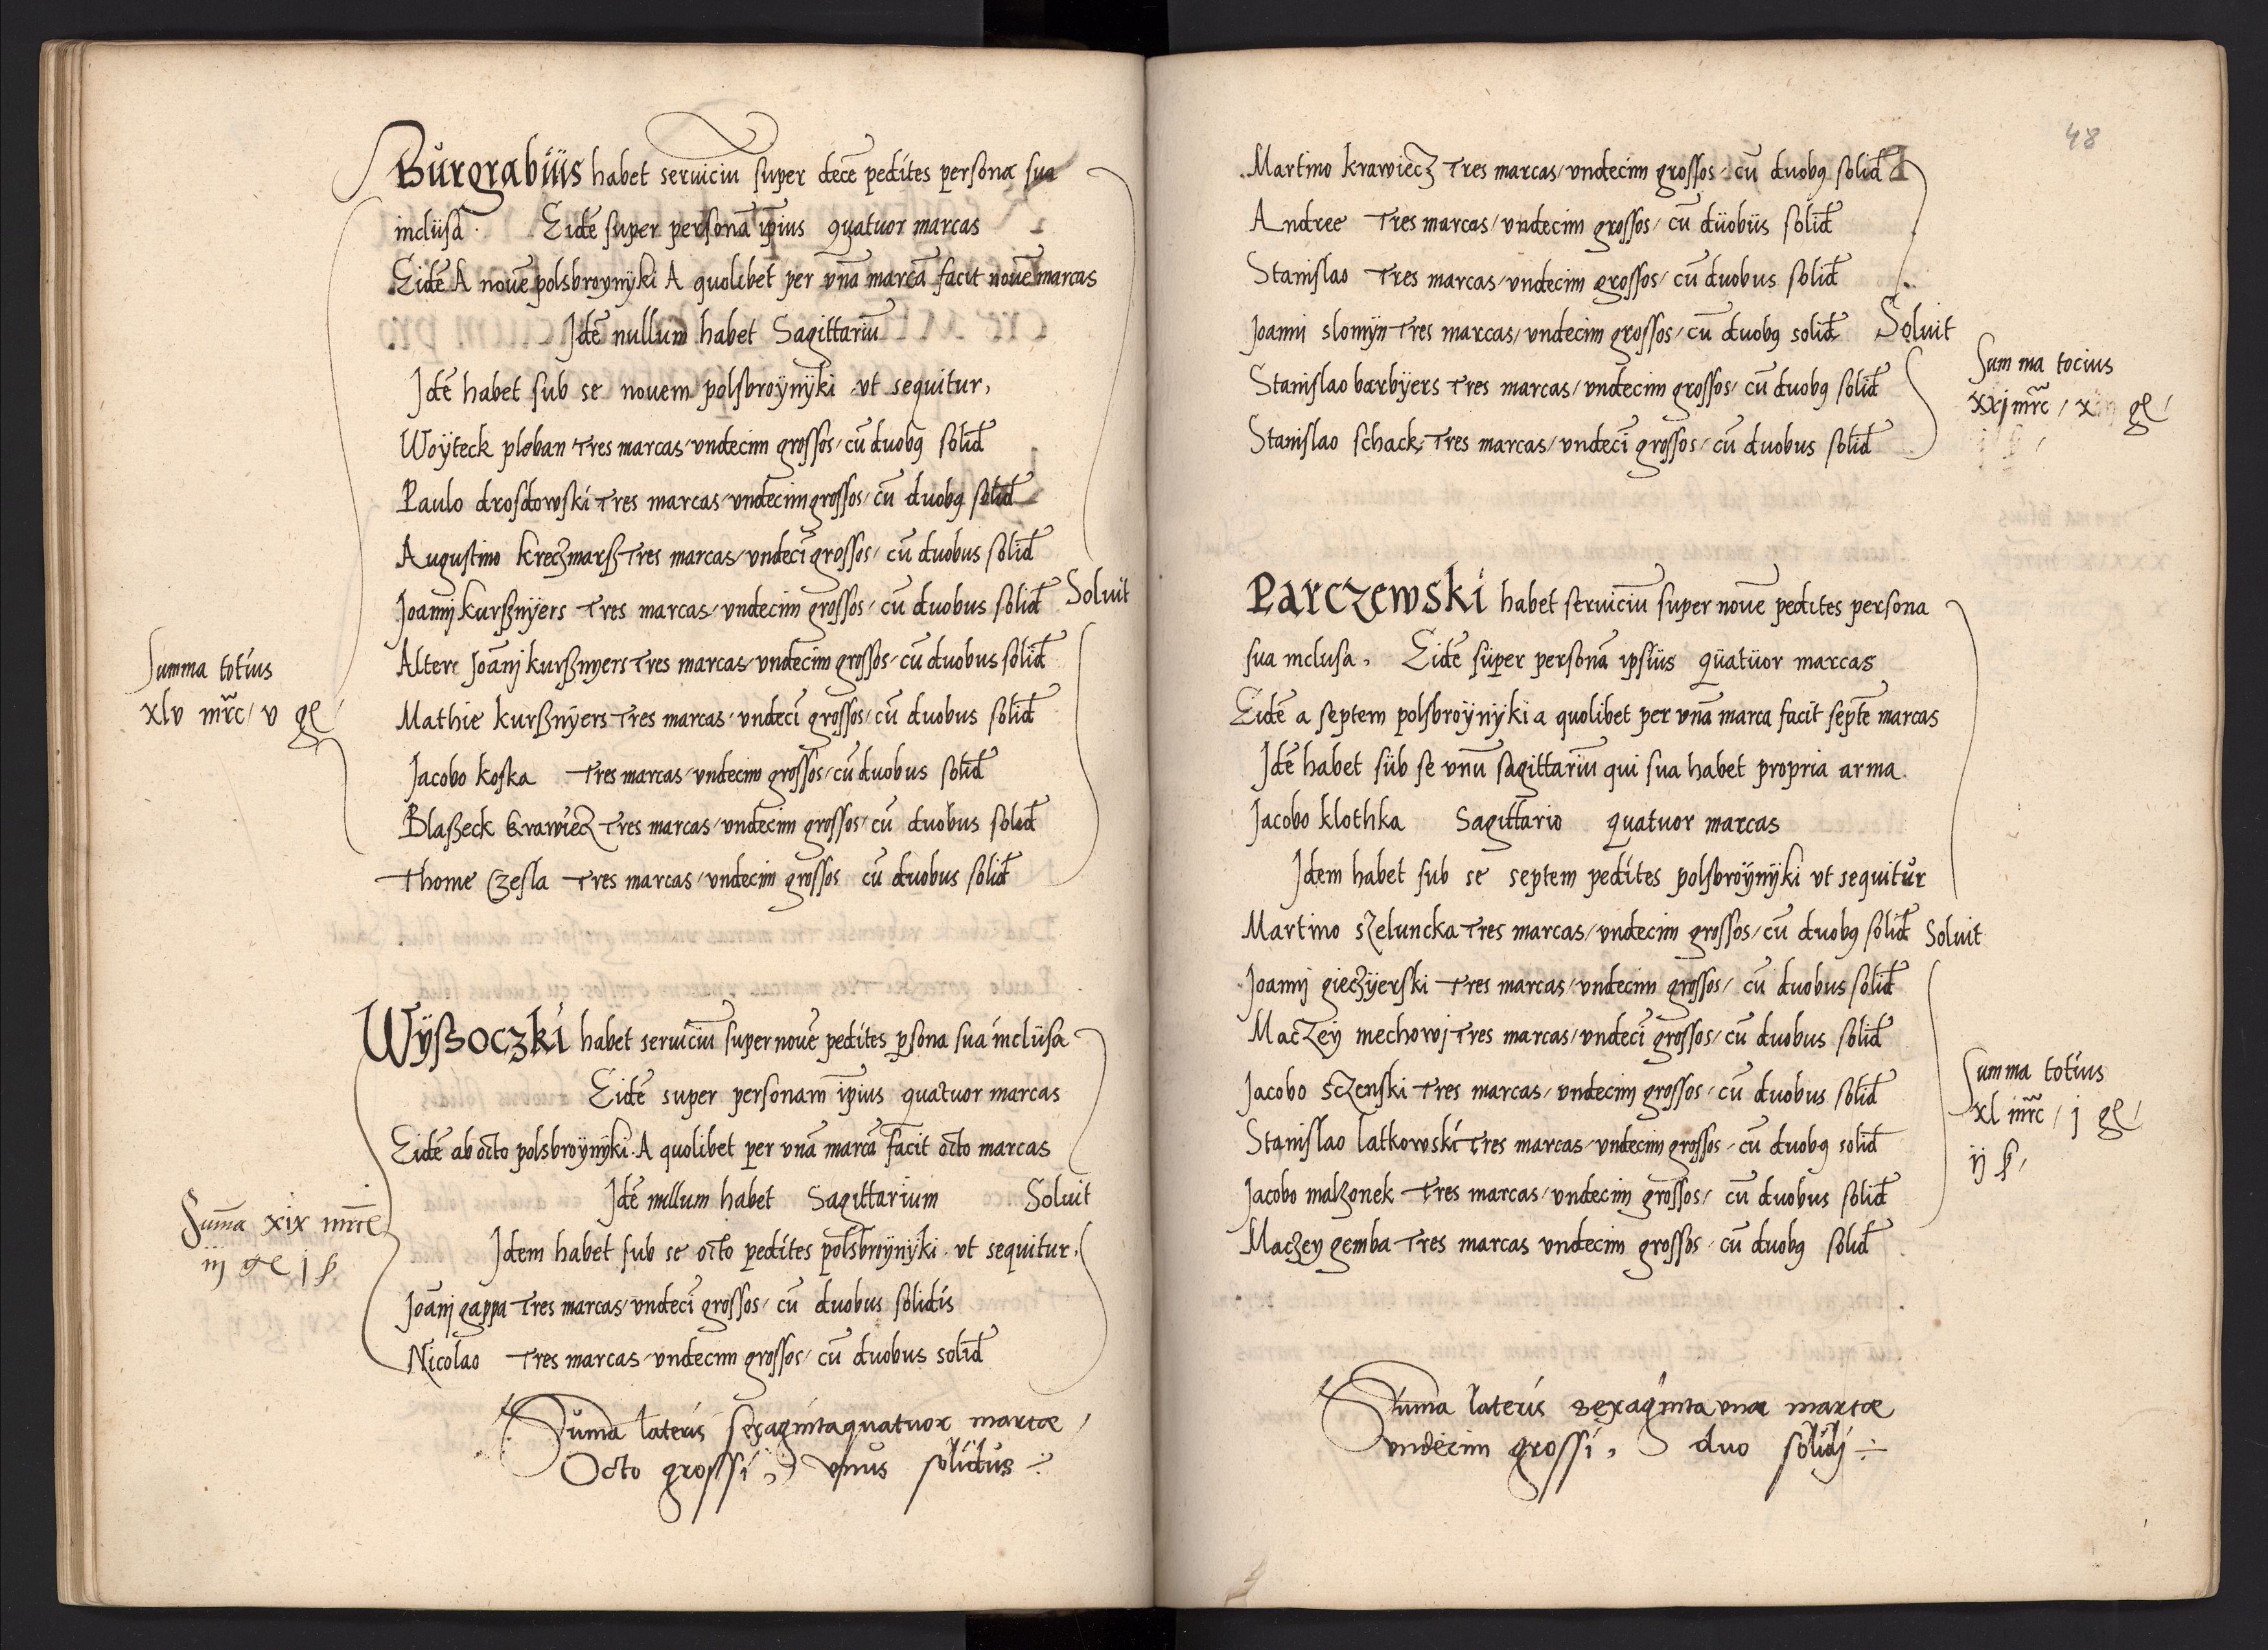 Burgrabius habet seruiciū super decē pedites persona sua
inclusa. Eidē super personā ipīus quatuor marcas
Eidē A nouē polsbroynÿki A quolibet per vnā marcā facit nouē marcas
Idē nullum habet Sagittariū
Idē habet sub se nouem polsbroÿnÿki vt sequitur,
Woÿteck pleban Tres marcas/ vndecim grossos/ cū duobꝯ solid
Paulo drosdowski Tres marcas/ vndecim grossos/ cū duobꝯ solid
Augustino kreczmarß Tres marcas/ vndecī grossos/ cū duobus solid
Joannj kurßnÿers Tres marcas/ vndecim grossos/ cū duobus solid Soluit
Altere Joānj kurßnyers Tres marcas/ vndecim grossos/ cū duobus solid
Summa totius
xlv mrc/ v gl
Mathie kurßnÿers Tres marcas/ vndecī grossos/ cū duobus solid
Jacobo koska Tres marcas/ vndecim grossos/ cū duobus solid
Blaßeck krawiecz Tres marcas/ vndecim grossos/ cū duobus solid
Thome Czesla Tres marcas/ vndecim grossos cū duobus solid
Wÿßoczki habet seruiciū super nouē pedites psona sua inclusa
Eidē super personam ipīus quatuor marcas
Eidē ab octo polsbroÿnÿki. A quolibet per vnā marcā facit octo marcas
Idē nullum habet Sagittarium Soluit
Sum̄a xix mrc
iij gl j ß
Idem habet sub se octo pedites polsbroÿnÿki. vt sequitur.
Joānj gappa Tres marcas/ vndecī grossos/ cū duobus solidis
Nicolao Tres marcas/ vndecim grossos/ cū duobus solid
Sum̄a lateris sexagintaquatuor marcæ/
Octo grossi, vnus solidus ÷
48
Martino krawiecz Tres marcas/ vndecim grossos/ cū duobꝯ solid
Andree Tres marcas/ vndecim grossos/ cū duobus solid
Stanislao Tres marcas/ vndecim grossos/ cū duobus solid
Joanni slomÿn Tres marcas/ vndecim grossos/ cū duobꝯ solid Soluit
Summa tocius
xxj mrc/ gl/
Stanislao barbÿers Tres marcas/ vndecim grossos/ cū duobꝯ solid
Stanislao schack Tres marcas/ vndecī grossos/ cū duobus solid
Parczewski habet seruiciū super nouē pedites persona
sua inclusa, Eidē super personā ipsius quatuor marcas
Eidē a septem polsbroÿnÿki a quolibet per vnā marca facit septē marcas
Idē habet sub se vnū sagittariū qui sua habet propria arma.
Jacobo klothka Sagittario quatuor marcas
Idem habet sub se septem pedites polsbroÿnÿki vt sequitur
Martino szeluncka Tres marcas/ vndecim grossos/ cū duobꝯ solid Soluit
Joannj gieczÿerski Tres marcas/ vndecim grossos/ cū duobus solid
Maczeÿ mechowj Tres marcas/ vndecī grossos/ cū duobus solid
Jacobo sczenski Tres marcas/ vndecim grossos/ cū duobus solid
Summa totius
xl mrc/ j gl/
ij ß/
Stanislao latkowski Tres marcas/ vndecim grossos/ cū duobꝯ solid
Jacobo malzonek Tres marcas/ vndecim grossos/ cū duobus solid
Maczey gemba Tres marcas vndecim grossos/ cū duobꝯ solid
Sum̄a lateris sexaginta vna marcæ
vndecim grossi, duo solidj ÷